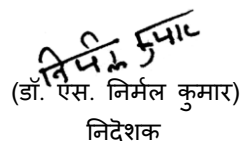 निर्मल कुमार
(डॉ. एस. निर्मल कुमार)
निदॆशक